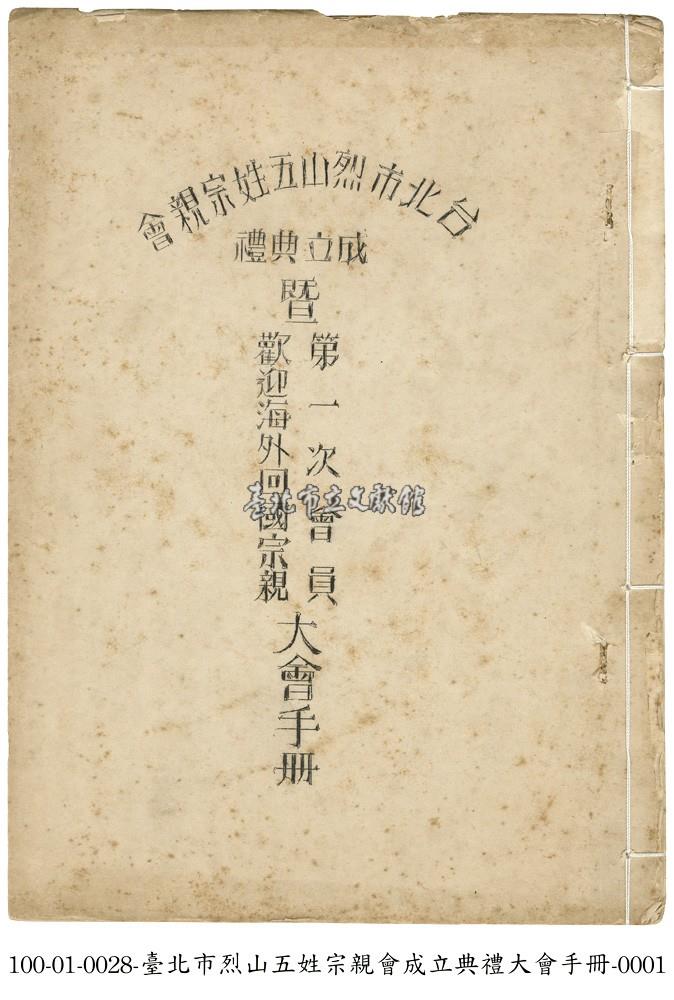 台北市烈山五姓宗親會
成立典禮
暨
第一次會員
歡迎海外回國宗親
大會手册
臺北市立文獻館
100-01-0028-臺北市烈山五姓宗親會成立典禮大會手冊-0001